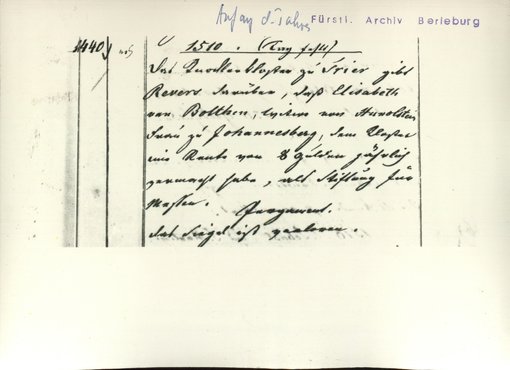 Anfang d. Jahres Fürstl. Archiv Berleburg
1510. (Tag fehlt)
Das Frauenkloster zu Trier gibt
Revers darüber, daß Elisabeth
von Bolchen, witwe von Hunolstein
Frau zu Johannesberg, dem Kloster
eine Rente von 8 Gulden jährlich
vermacht habe, als Stiftung für
Messen. Pergament.
das Siegel ist verloren.